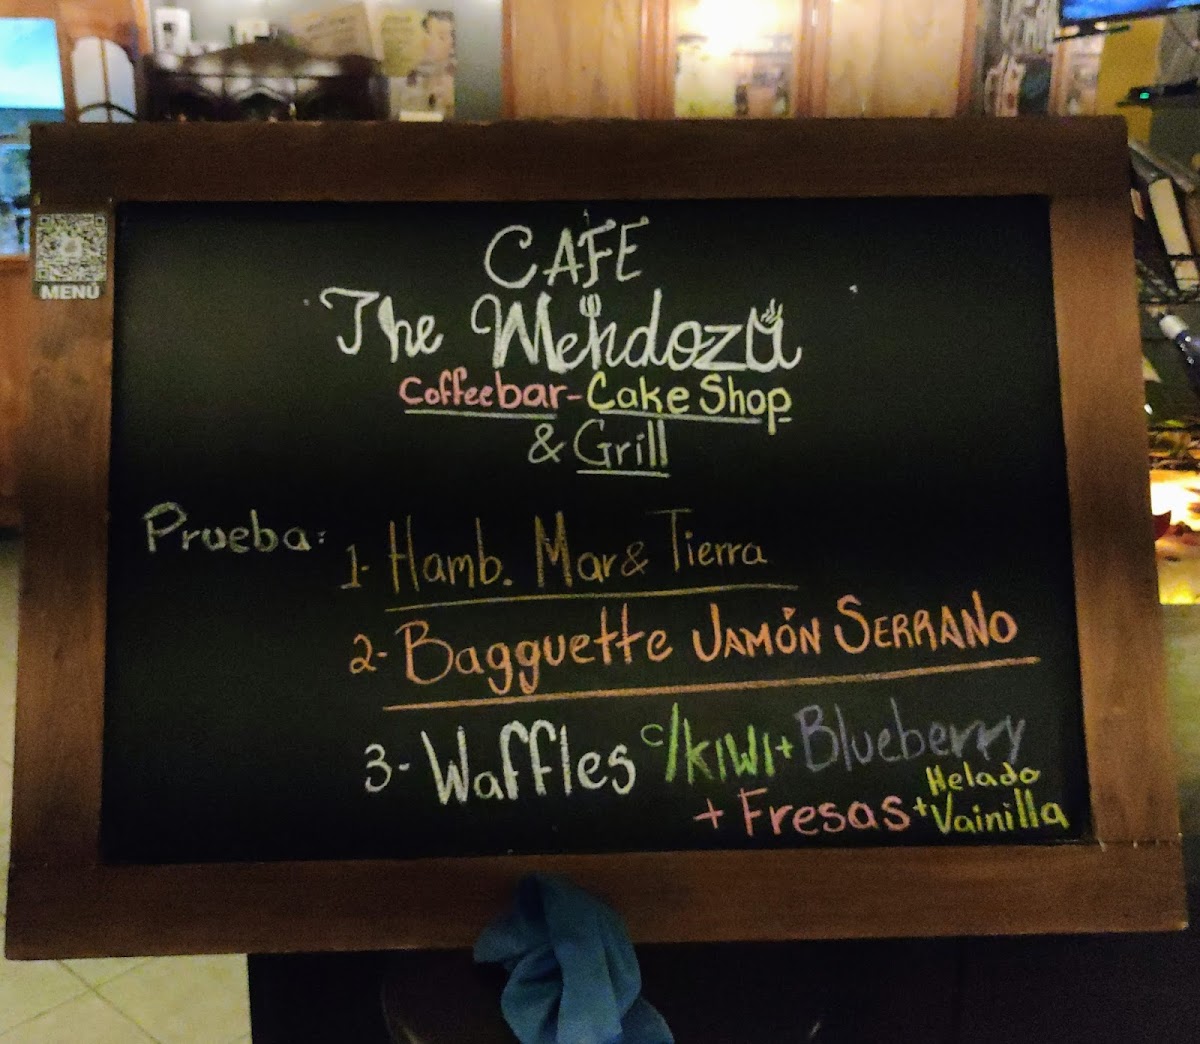 MENÚ
CAFE
The Mendoza
Coffeebar-Cake Shop
& Grill
Prueba: 1- Hamb. Mar & Tierra
2- Bagguette JAMÓN SERRANO
3- Waffles c/KIWI + Blueberry
+ Fresas + Helado Vainilla